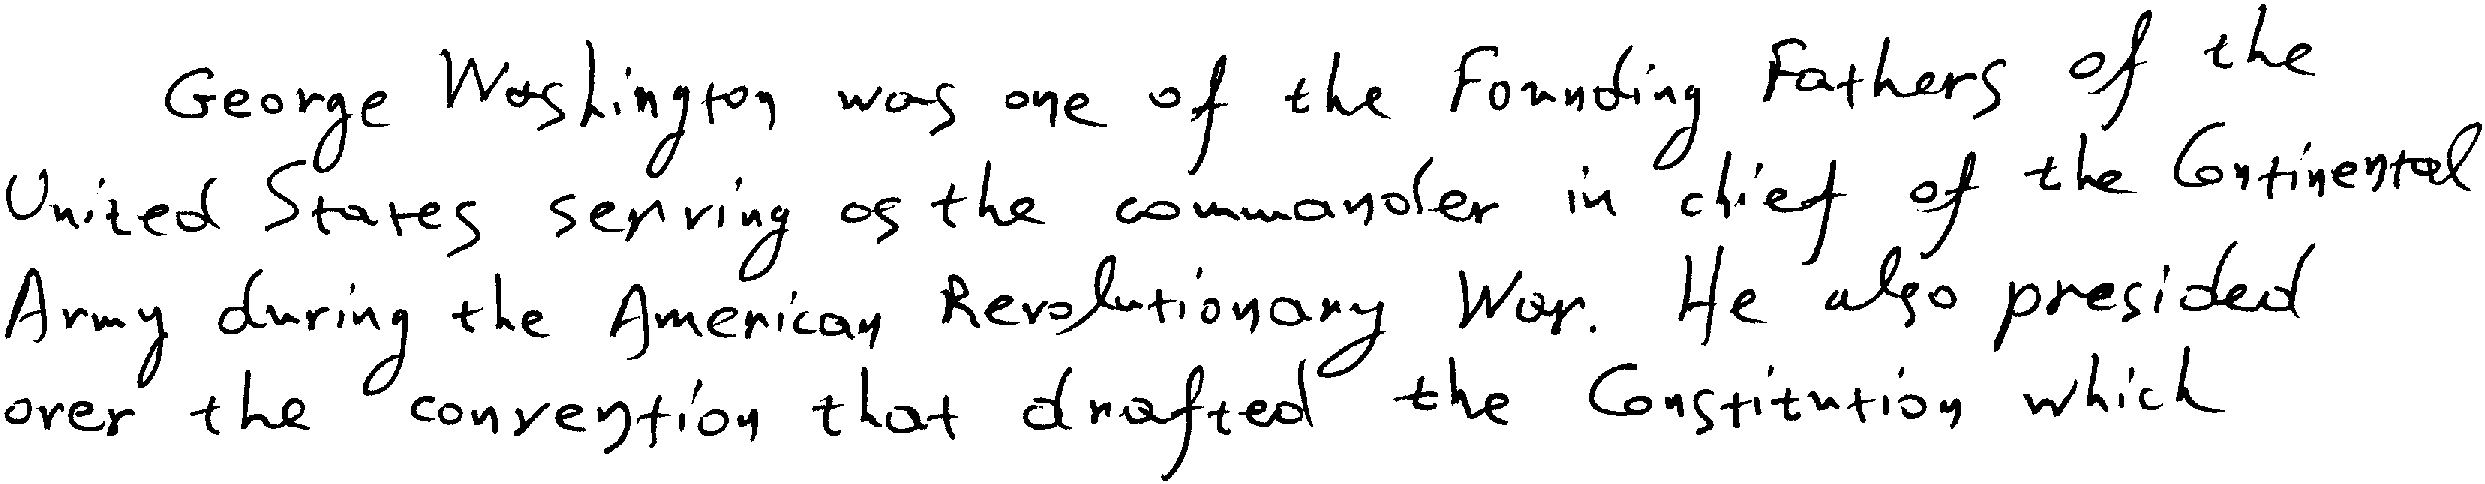 George Washington was one of the Founding Fathers of the
United States serving as the commander in chief of the Continental
Army during the American Revolutionary War. He also presided
over the convention that drafted the Constitution which